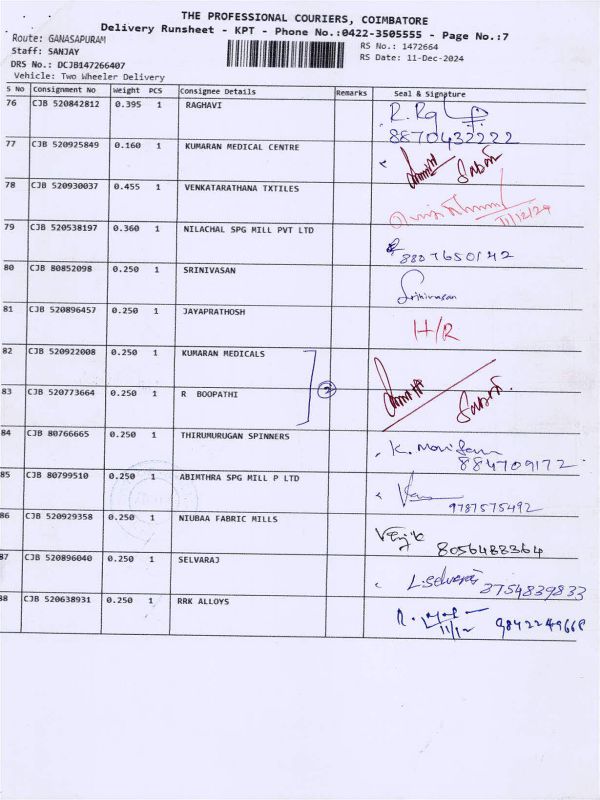 THE PROFESSIONAL COURIERS, COIMBATORE
Delivery Runsheet - KPT - Phone No.:0422-3505555 - Page No.:7
Route: GANASAPURAM
RS No.: 1472664
Staff: SANJAY
RS Date: 11-Dec-2024
DRS No.: DCJB147266407
Vehicle: Two Wheeler Delivery
S No Consignment No Weight PCS Consignee Details Remarks Seal & Signature
76 CJB 520842812 0.395 1 RAGHAVI
8870432222
77 CJB 520925849 0.160 1 KUMARAN MEDICAL CENTRE
78 CJB 520930037 0.455 1 VENKATARATHANA TXTILES
11/12/24
79 CJB 520538197 0.360 1 NILACHAL SPG MILL PVT LTD
8807650142
80 CJB 80852098 0.250 1 SRINIVASAN
Srinivasan
81 CJB 520896457 0.250 1 JAYAPRATHOSH
H/R
82 CJB 520922008 0.250 1 KUMARAN MEDICALS
2
83 CJB 520773664 0.250 1 R BOOPATHI
84 CJB 80766665 0.250 1 THIRUMURUGAN SPINNERS
884709172
85 CJB 80799510 0.250 1 ABIMTHRA SPG MILL P LTD
9787575492
86 CJB 520929358 0.250 1 NIUBAA FABRIC MILLS
8056488364
87 CJB 520896040 0.250 1 SELVARAJ
L.Selvaraj 3754839833
88 CJB 520638931 0.250 1 RRK ALLOYS
11/12